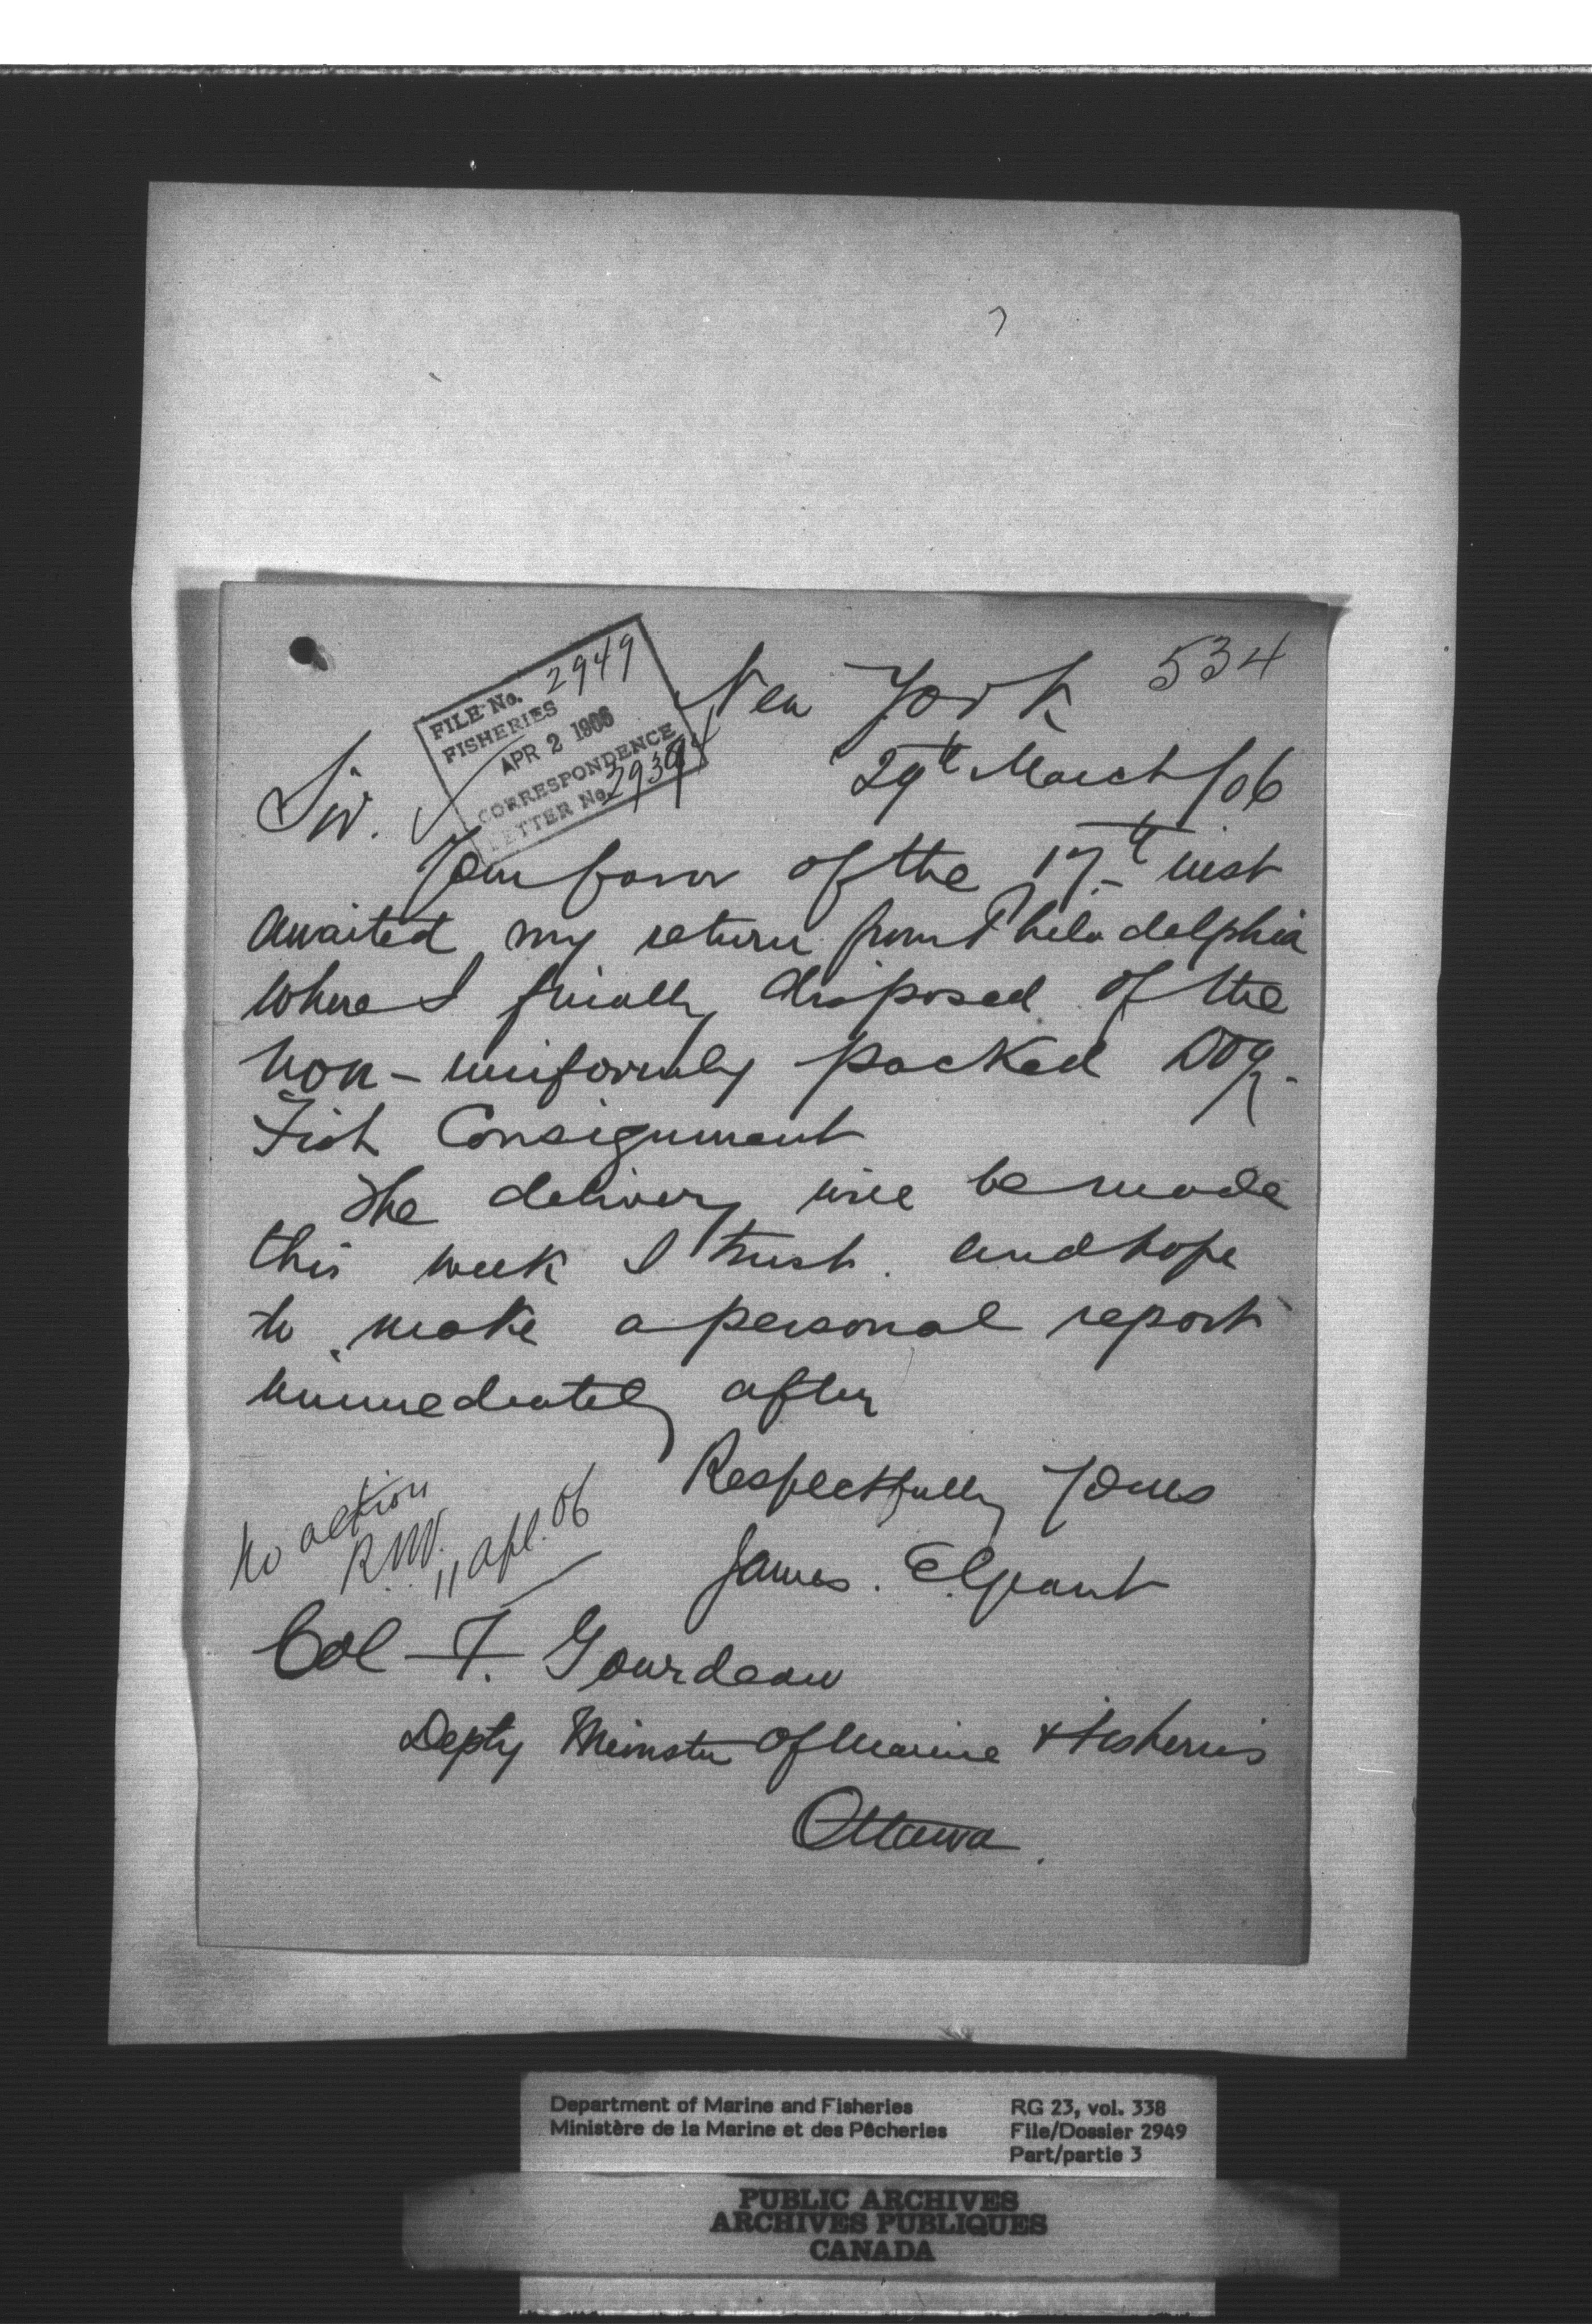 534
New York
29th March/06
FILE No. 2949
FISHERIES
APR 2 1906
CORRESPONDENCE
LETTER No.
Sir.
Your favor of the 17th inst
awaited my return from Philadelphia
where I finally disposed of the
non-uniformly packed Dog-
Fish Consignment
The delivery will be made
this week I trust. and hope
to make a personal report
immediately after
Respectfully Yours
James. E Grant
No action
R.N.V.
11 Apl. 06
Col F. Gourdeau
Depty Minster Of Marine & Fisheries
Ottawa.
Department of Marine and Fisheries
Ministère de la Marine et des Pêcheries
RG 23, vol. 338
File/Dossier 2949
Part/partie 3
PUBLIC ARCHIVES
ARCHIVES PUBLIQUES
CANADA